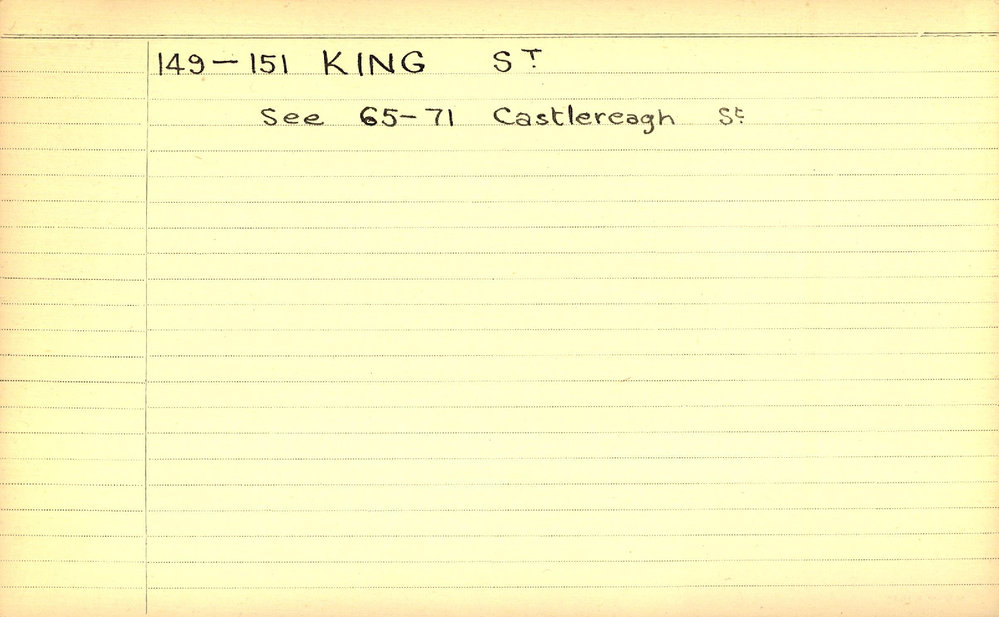 149-151 KING ST
See 65-71 Castlereagh St